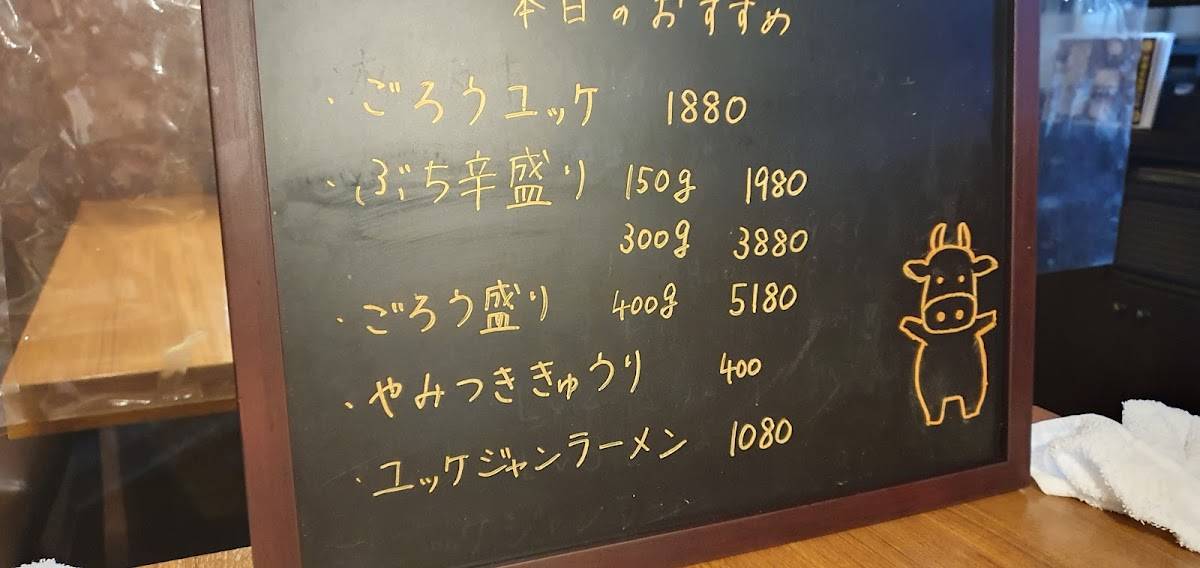 本日のおすすめ
・ごろうユッケ 1880
・ぶち辛盛り 150g 1980
300g 3880
・ごろう盛り 400g 5180
・やみつききゅうり 400
・ユッケジャンラーメン 1080